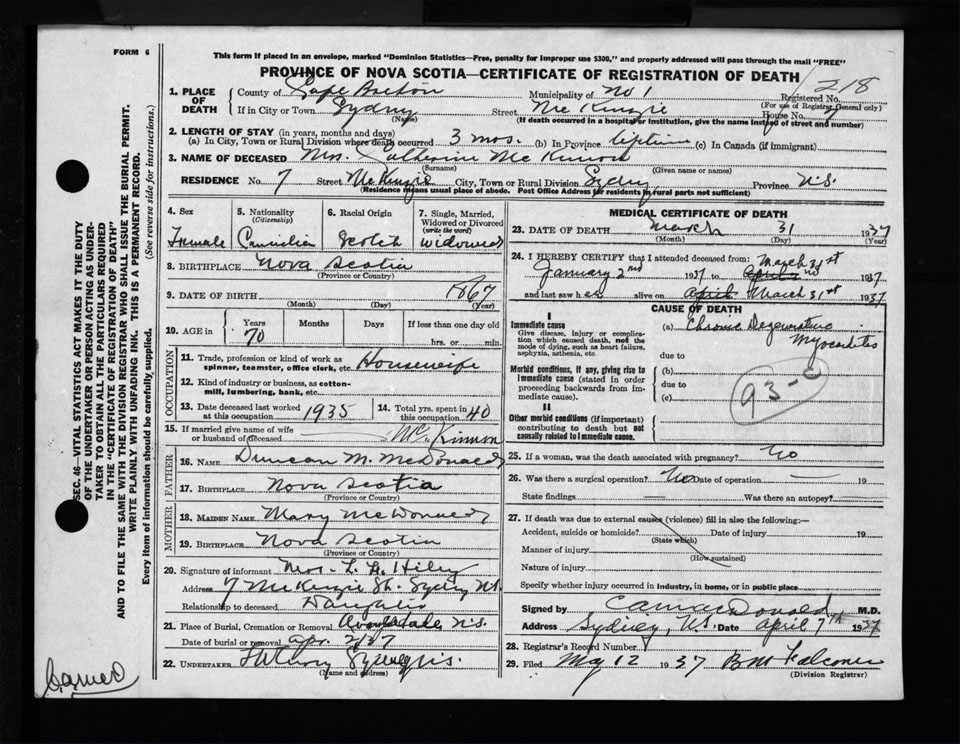 FORM 6
This form if placed in an envelope, marked "Dominion Statistics—Free, penalty for improper use $300," and properly addressed will pass through the mail "FREE"
PROVINCE OF NOVA SCOTIA—CERTIFICATE OF REGISTRATION OF DEATH
218
1. PLACE OF DEATH County of Cape Breton Municipality of No 1 Registered No.
(For use of Registrar General only)
If in City or Town Sydney Street McKenzie House No. 7
(Name) (If death occurred in a hospital or institution, give the name instead of street and number)
2. LENGTH OF STAY (in years, months and days)
(a) In City, Town or Rural Division where death occurred 3 mos. (b) In Province lifetime (c) In Canada (if immigrant)
3. NAME OF DECEASED Mrs. Catherine McKinnon
(Surname) (Given name or names)
RESIDENCE No. 7 Street McKenzie City, Town or Rural Division Sydney Province N.S.
(Residence means usual place of abode. Post Office Address for residents in rural parts not sufficient)
4. Sex Female
5. Nationality (Citizenship) Canadian
6. Racial Origin Scotch
7. Single, Married, Widowed or Divorced (write the word) widowed
8. BIRTHPLACE Nova Scotia
(Province or Country)
9. DATE OF BIRTH 1867
(Month) (Day) (Year)
10. AGE in Years 70 Months Days If less than one day old
hrs. or min.
OCCUPATION
11. Trade, profession or kind of work as spinner, teamster, office clerk, etc. Housewife
12. Kind of industry or business, as cotton-mill, lumbering, bank, etc.
13. Date deceased last worked at this occupation 1935
14. Total yrs. spent in this occupation 40
15. If married give name of wife or husband of deceased McKinnon
FATHER
16. NAME Duncan M. McDonald
17. BIRTHPLACE Nova Scotia
(Province or Country)
MOTHER
18. MAIDEN NAME Mary McDonald
19. BIRTHPLACE Nova Scotia
(Province or Country)
20. Signature of informant Mrs. L. A.
Address 7 McKenzie St. Sydney N.S.
Relationship to deceased Daughter
21. Place of Burial, Cremation or Removal N.S.
Date of burial or removal Apr. 2/37
22. UNDERTAKER Sydney N.S.
(Name and address)
MEDICAL CERTIFICATE OF DEATH
23. DATE OF DEATH March 31 1937
(Month) (Day) (Year)
24. I HEREBY CERTIFY that I attended deceased from: March 31st
January 2nd 1937 to April 2nd 1937
and last saw her alive on April March 31st 1937
CAUSE OF DEATH
I
Immediate cause
Give disease, injury or complication which caused death, not the mode of dying, such as heart failure, asphyxia, asthenia, etc.
(a) Chronic Degenerative Myocarditis
due to
Morbid conditions, if any, giving rise to immediate cause (stated in order proceeding backwards from immediate cause).
(b)
due to
(c)
93-c
II
Other morbid conditions (if important) contributing to death but not causally related to immediate cause.
25. If a woman, was the death associated with pregnancy? No
26. Was there a surgical operation? No Date of operation 19
State findings Was there an autopsy?
27. If death was due to external causes (violence) fill in also the following:—
Accident, suicide or homicide? Date of injury 19
(State which)
Manner of injury
(How sustained)
Nature of injury
Specify whether injury occurred in industry, in home, or in public place
Signed by MacDonald, M.D.
Address Sydney, N.S. Date April 7th 1937
28. Registrar's Record Number
29. Filed May 12 1937 B M Falconer
(Division Registrar)
SEC. 46—VITAL STATISTICS ACT MAKES IT THE DUTY
OF THE UNDERTAKER OR PERSON ACTING AS UNDER-
TAKER TO OBTAIN ALL THE PARTICULARS REQUIRED
IN THE "CERTIFICATE OF REGISTRATION OF DEATH"
AND TO FILE THE SAME WITH THE DIVISION REGISTRAR WHO SHALL ISSUE THE BURIAL PERMIT.
WRITE PLAINLY WITH UNFADING INK. THIS IS A PERMANENT RECORD.
Every item of information should be carefully supplied. (See reverse side for instructions.)